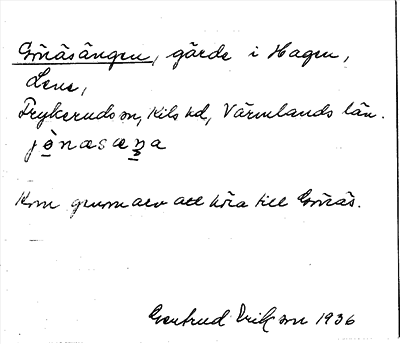 Gönäsängen, gärde i Hagen,
Lene,
Frykeruds sn, Kils hd, Värmlands län.
jònasæŋa
Kom genom arv att höra till Gönäs.
Gertrud Erikson 1936